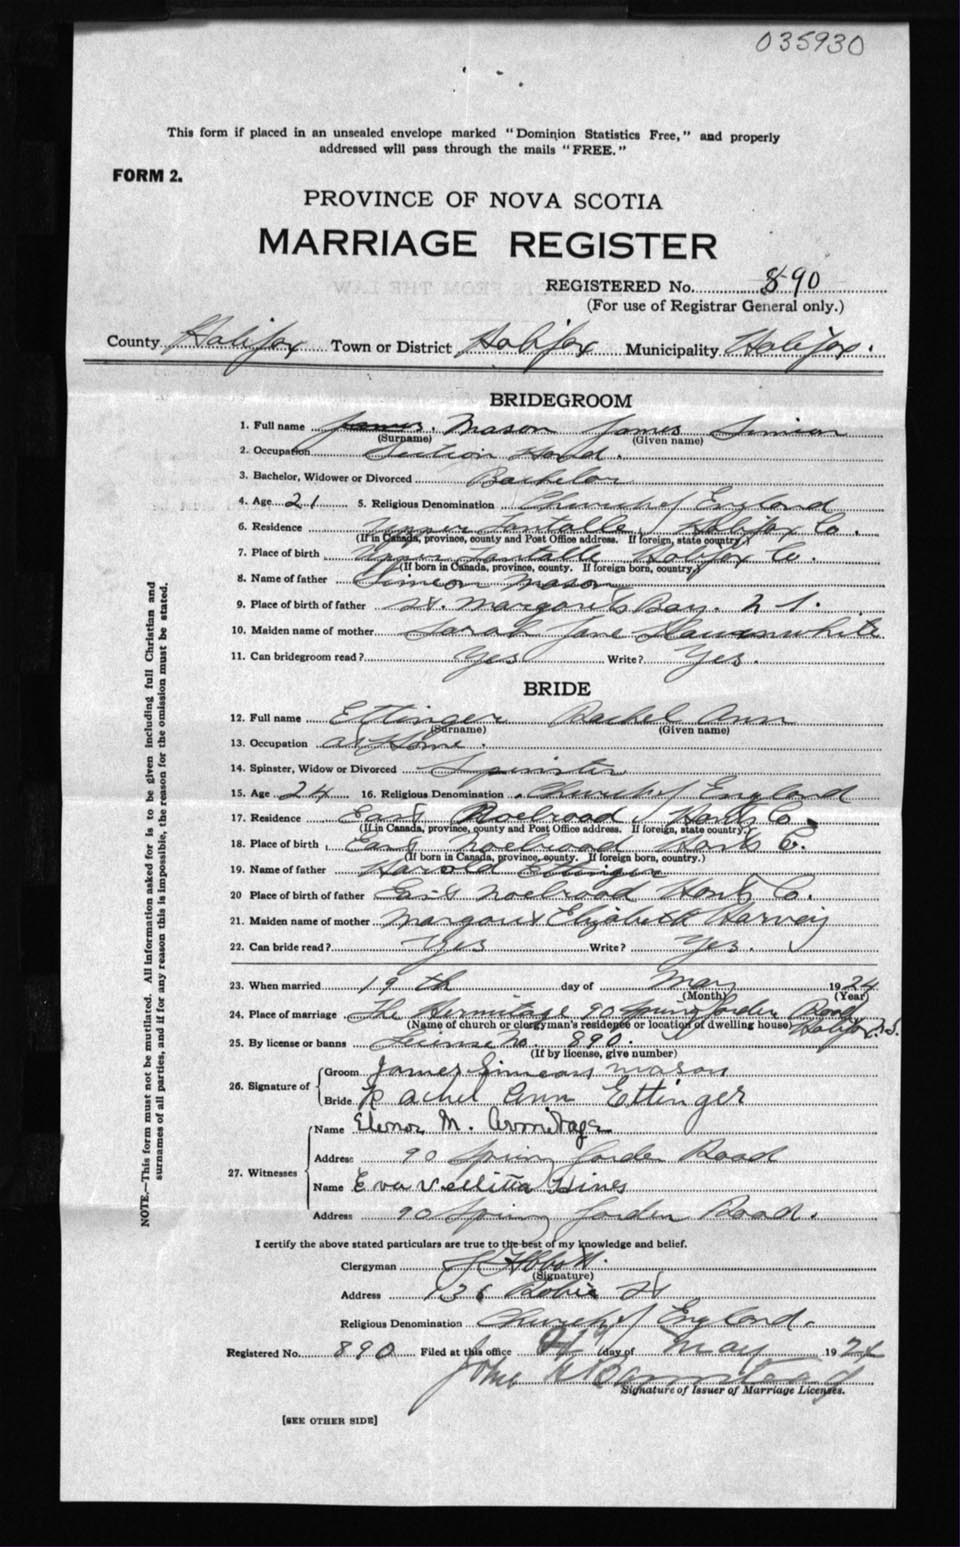 035930
This form if placed in an unsealed envelope marked "Dominion Statistics Free," and properly
addressed will pass through the mails "FREE."
FORM 2.
PROVINCE OF NOVA SCOTIA
MARRIAGE REGISTER
REGISTERED No. 890
(For use of Registrar General only.)
County Halifax Town or District Halifax Municipality Halifax.
BRIDEGROOM
1. Full name Mason James Simeon
(Surname) (Given name)
2. Occupation Section Hand.
3. Bachelor, Widower or Divorced Bachelor
4. Age 21 5. Religious Denomination Church of England
6. Residence Upper Halifax Co.
(If in Canada, province, county and Post Office address. If foreign, state country.)
7. Place of birth Upper Halifax Co.
(If born in Canada, province, county. If foreign born, country.)
8. Name of father Simeon Mason
9. Place of birth of father St. Margarets Bay.
10. Maiden name of mother Sarah Jane
11. Can bridegroom read? Yes Write? Yes.
BRIDE
12. Full name Ettinger Rachel Ann
(Surname) (Given name)
13. Occupation at Home.
14. Spinster, Widow or Divorced Spinster
15. Age 24 16. Religious Denomination Church of England
17. Residence East Hants Co.
(If in Canada, province, county and Post Office address. If foreign, state country.)
18. Place of birth East Noelroad Hants Co.
(If born in Canada, province, county. If foreign born, country.)
19. Name of father Harold Ettinger
20 Place of birth of father East Noelroad Hants Co.
21. Maiden name of mother Margaret Elizabeth Harvey
22. Can bride read? Yes Write? Yes.
23. When married 19th day of May 1924
(Month) (Year)
24. Place of marriage The Hermitage 90 Spring Garden Road
Halifax N.S.
(Name of church or clergyman's residence or location of dwelling house)
25. By license or banns License No. 890.
(If by license, give number)
26. Signature of Groom James Simeon Mason
Bride Rachel Ann Ettinger
27. Witnesses
Name Elenor M. Armitage
Address 90 Spring Garden Road
Name Eva Hines
Address 90 Spring Garden Road.
I certify the above stated particulars are true to the best of my knowledge and belief.
Clergyman
(Signature)
Address 136 Robie St
Religious Denomination Church of England.
Registered No. 890 Filed at this office day of May 1924
John
Signature of Issuer of Marriage Licenses.
[SEE OTHER SIDE]
NOTE.—This form must not be mutilated. All information asked for is to be given including full Christian and
surnames of all parties, and if for any reason this is impossible, the reason for the omission must be stated.